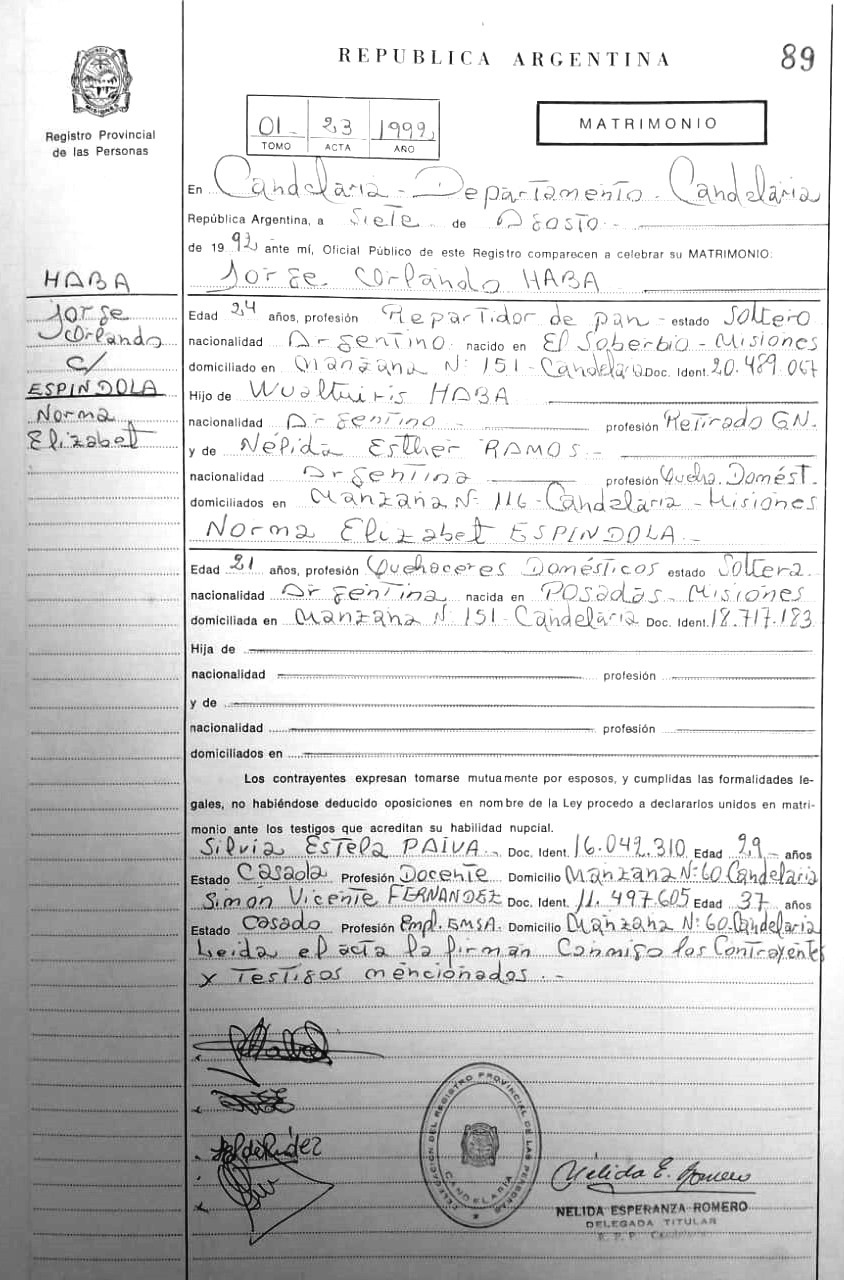 REPUBLICA ARGENTINA
89
Registro Provincial
de las Personas
01 23 1992
TOMO ACTA AÑO
MATRIMONIO
En Candelaria - Departamento - Candelaria
República Argentina, a Siete de Agosto -
de 1992 ante mí, Oficial Público de este Registro comparecen a celebrar su MATRIMONIO:
Jorge Orlando HABA
HABA
Jorge
Orlando
c/
ESPINDOLA
Norma
Elizabet
Edad 24 años, profesión Repartidor de pan - estado Soltero
nacionalidad Argentino. nacido en El Soberbio - Misiones
domiciliado en Manzana Nº 151 - Candelaria Doc. Ident. 20.489.067
Hijo de HABA
nacionalidad Argentino profesión Retirado GN.
y de Nélida Esther RAMOS -
nacionalidad Argentina profesión Queha. Domést.
domiciliados en Manzana Nº 116 - Candelaria - Misiones
Norma Elizabet ESPINDOLA -
Edad 21 años, profesión Quehaceres Domésticos estado Soltera
nacionalidad Argentina nacida en Posadas - Misiones
domiciliada en Manzana Nº 151 - Candelaria Doc. Ident. 18.717.183
Hija de
nacionalidad profesión
y de
nacionalidad profesión
domiciliados en
Los contrayentes expresan tomarse mutuamente por esposos, y cumplidas las formalidades le-
gales, no habiéndose deducido oposiciones en nombre de la Ley procedo a declararlos unidos en matri-
monio ante los testigos que acreditan su habilidad nupcial.
Silvia Estela PAIVA - Doc. Ident. 16.042.310 Edad 29 - años
Estado Casada Profesión Docente Domicilio Manzana Nº 60 Candelaria
Simón Vicente FERNANDEZ Doc. Ident. 11.497.605 Edad 37 años
Estado Casado Profesión Empl. EMSA. Domicilio Manzana Nº 60 - Candelaria
Leida el acta la firman Conmigo los Contrayentes
y Testigos mencionados. -
DELEGACION DEL REGISTRO PROVINCIAL DE LAS PERSONAS
CANDELARIA
Nélida E. Romero
NELIDA ESPERANZA ROMERO
DELEGADA TITULAR